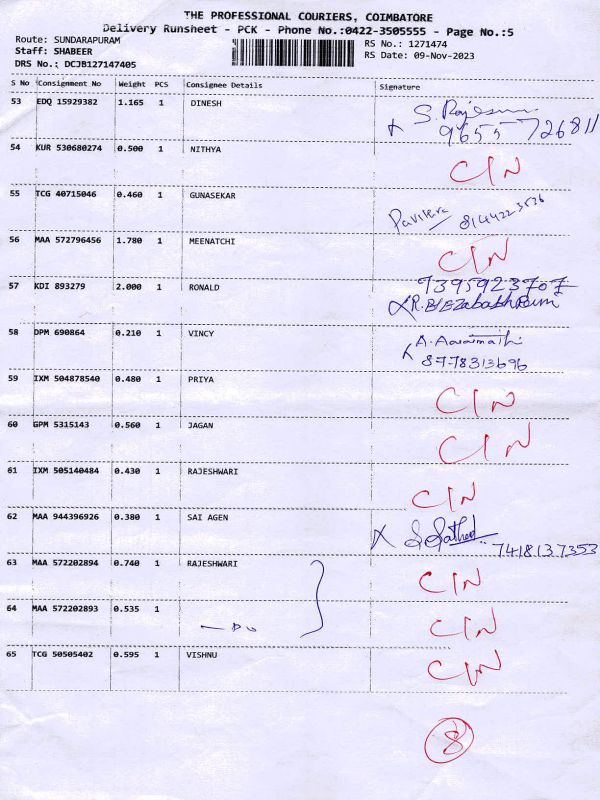 THE PROFESSIONAL COURIERS, COIMBATORE
Delivery Runsheet - PCK - Phone No.:0422-3505555 - Page No.:5
Route: SUNDARAPURAM
RS No.: 1271474
Staff: SHABEER
RS Date: 09-Nov-2023
DRS No.: DCJB127147405
S No Consignment No Weight PCS Consignee Details Signature
53 EDQ 15929382 1.165 1 DINESH
9655726811
54 KUR 530680274 0.500 1 NITHYA C/N
55 TCG 40715046 0.460 1 GUNASEKAR
56 MAA 572796456 1.780 1 MEENATCHI C/N
57 KDI 893279 2.000 1 RONALD 7395923707
58 DPM 690864 0.210 1 VINCY
8778313696
59 IXM 504878540 0.480 1 PRIYA C/N
60 GPM 5315143 0.560 1 JAGAN C/N
61 IXM 505140484 0.430 1 RAJESHWARI C/N
62 MAA 944396926 0.380 1 SAI AGEN
7418137353
63 MAA 572202894 0.740 1 RAJESHWARI C/N
64 MAA 572202893 0.535 1 C/N
65 TCG 50505402 0.595 1 VISHNU C/N
8